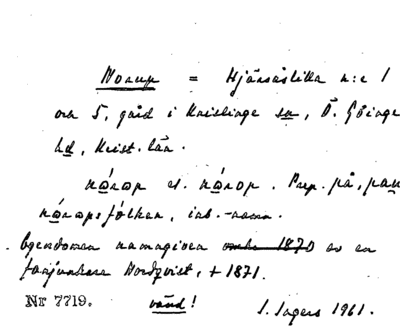 Norup = Hjärsåslilla n:o 1
och 5, gård i Knislinge sn, Ö. Göinge
hd, Krist. län.
nώ̲rωp el. nώ̲rop. Prep. på, på
nώ̲rωps fólken, inb.-namn.
Egendomen namngiven omkr 1870 av en
fanjunkare Nordqvist, † 1871.
Nr 7719. vänd! I. Ingers 1961.